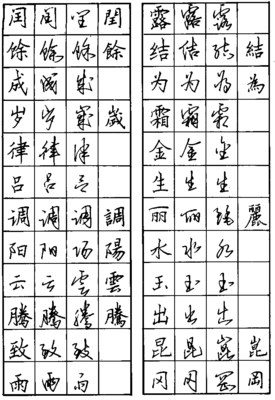 闰 闰 闰 閏
馀 馀 馀 餘
成 成 成
岁 岁 歲 歲
律 律 律
吕 吕 吕
调 调 调 調
阳 阳 阳 陽
云 云 雲 雲
腾 腾 騰 騰
致 致 致
雨 雨 雨
露 露 露
结 结 结 結
为 为 為 為
霜 霜 霜
金 金 金
生 生 生
丽 丽 麗 麗
水 水 水
玉 玉 玉
出 出 出
昆 昆 崑 崑
冈 冈 岡 岡